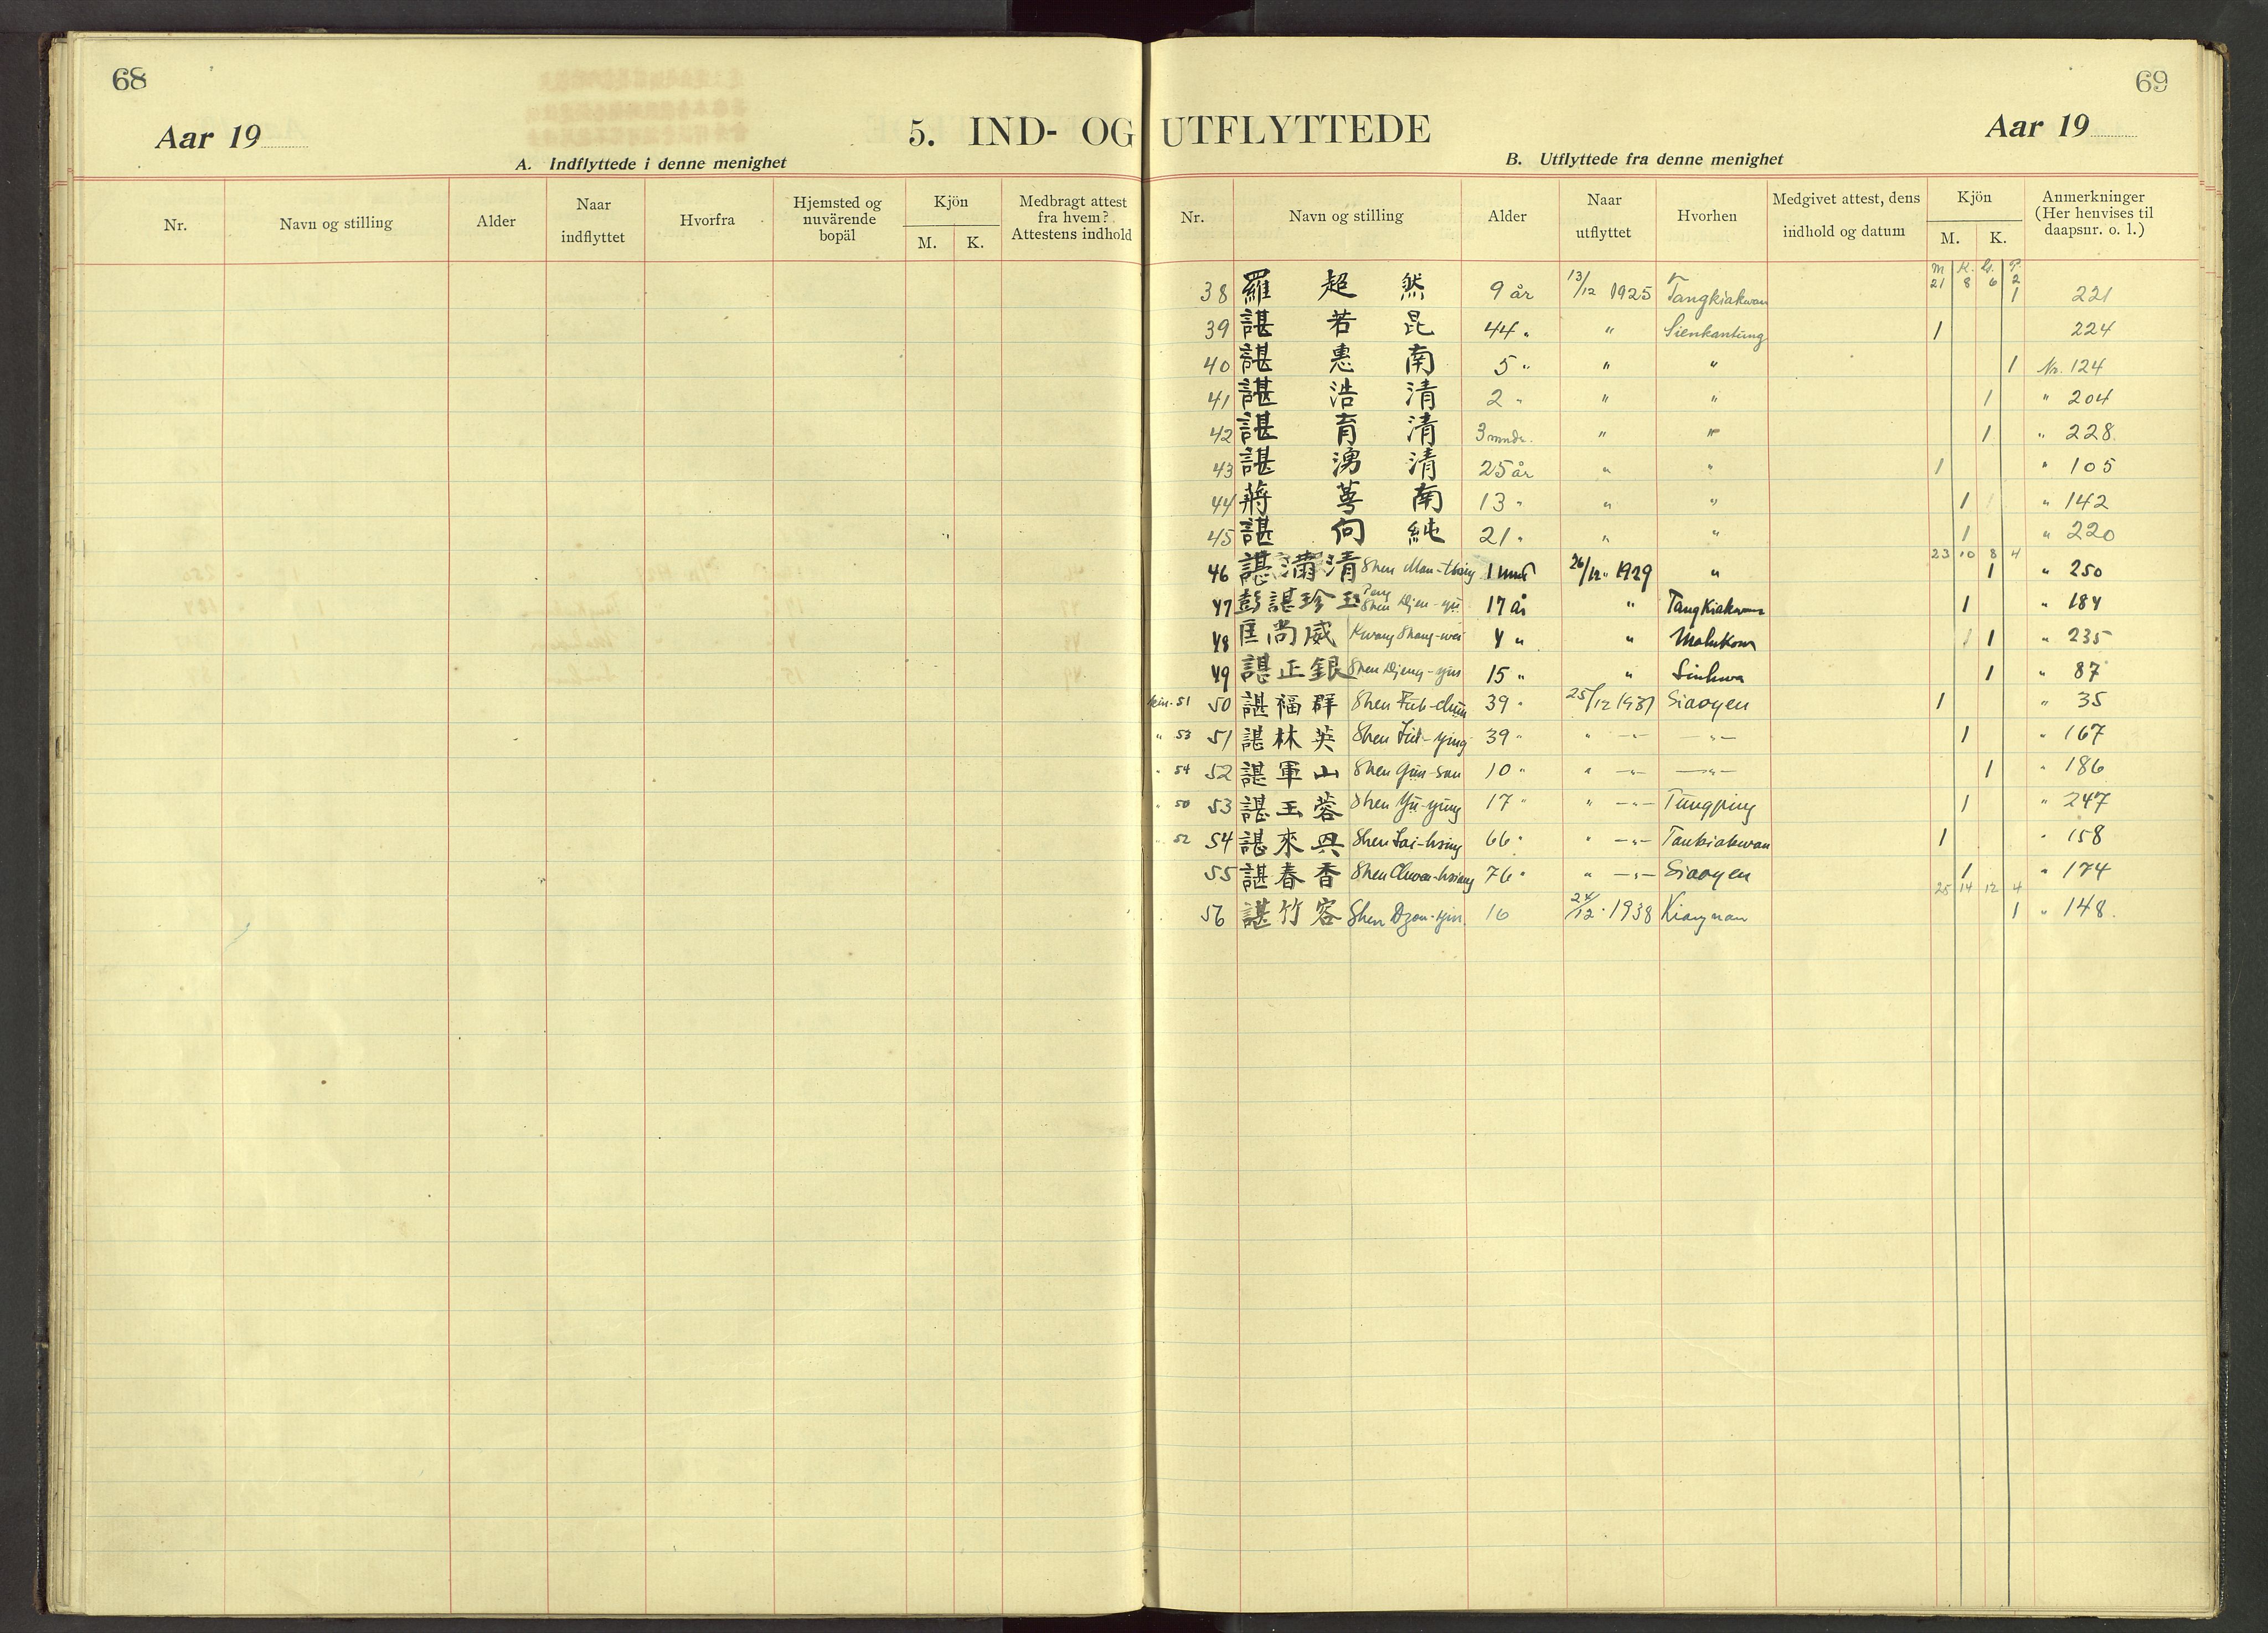 68
Aar 19
5. IND- OG UTFLYTTEDE
Aar 19
69
A. Indflyttede i denne menighet
B. Utflyttede fra denne menighet
Nr. Navn og stilling Alder Naar indflyttet Hvorfra Hjemsted og nuvärende bopäl Kjön M. K. Medbragt attest fra hvem? Attestens indhold
Nr. Navn og stilling Alder Naar utflyttet Hvorhen Medgivet attest, dens indhold og datum Kjön M. K. Anmerkninger (Her henvises til daapsnr. o. l.)
M K. G. P.
21 8 6 2
38 羅超然 9 år 13/12 1925 Tangkiakwan 1 221
39 諶若昆 44 " " Sienkantung 1 224
40 諶惠南 5 " " " 1 Nr. 124
41 諶浩清 2 " " " 1 " 204
42 諶育清 3 mndr. " " 1 " 228.
43 諶湧清 25 år " " 1 " 105
44 蔣萼南 13 " " " 1 " 142
45 諶向純 21 " " " 1 " 220
23 10 8 4
46 諶滿清 Shen Man-thsing 1 mnd 26/12 1929 " 1 " 250
47 彭諶珍玉 Peng Shen Djen-yü 17 år " Tangkiakwan 1 " 184
48 匡尚威 Kwang Shang-wei 4 " " 1 " 235
49 諶正銀 Shen Djeng-yin 15 " " Sinhwa 1 " 87
51 50 諶福群 Shen Fuh-chün 39 " 25/12 1931 Siaoyen 1 " 35
" 53 51 諶林英 39 " " -"- -"- 1 " 167
" 54 52 諶軍山 Shen Gün-san 10 " " -"- -"- 1 " 186
" 50 53 諶玉蓉 Shen Yü-yung 17 " " -"- Tungping 1 " 247
" 52 54 諶來興 Shen Lai-hsing 66 " " -"- Tankiakwan 1 " 158
55 諶春香 Shen Chwen-hsiang 76 " " -"- Siaoyen 1 " 174
25 14 12 4
56 諶竹容 Shen Dzou-yin 16 24/12 1938 Kiangnan 1 " 148.